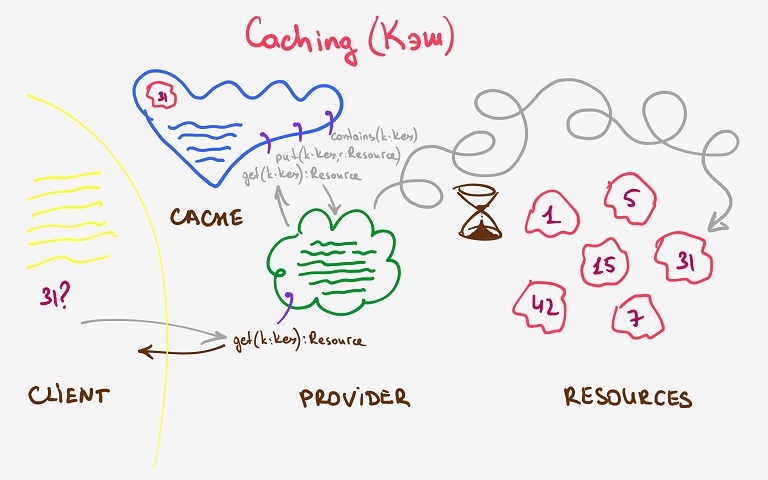 Caching (Кэш)
31
contains(k:Key)
put(k:Key,r:Resource)
get(k:Key):Resource
CACHE
31?
get(k:Key):Resource
1
5
15
31
42
7
CLIENT
PROVIDER
RESOURCES